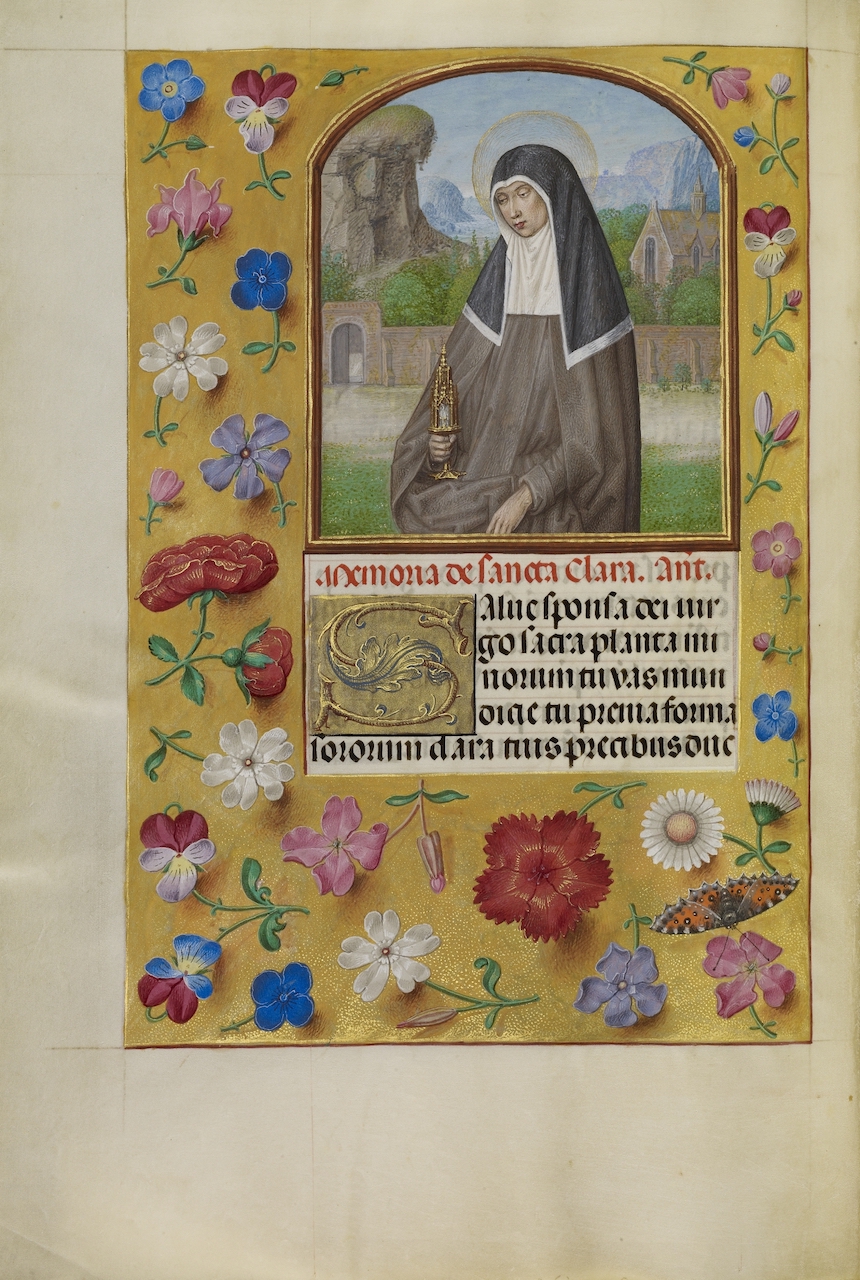 Memoria de sancta Clara. Añt.
Salue sponsa dei uir
go sacra planta mi
norum tu vas mun
dicie tu preuia forma
sororum clara tuis precibus duc